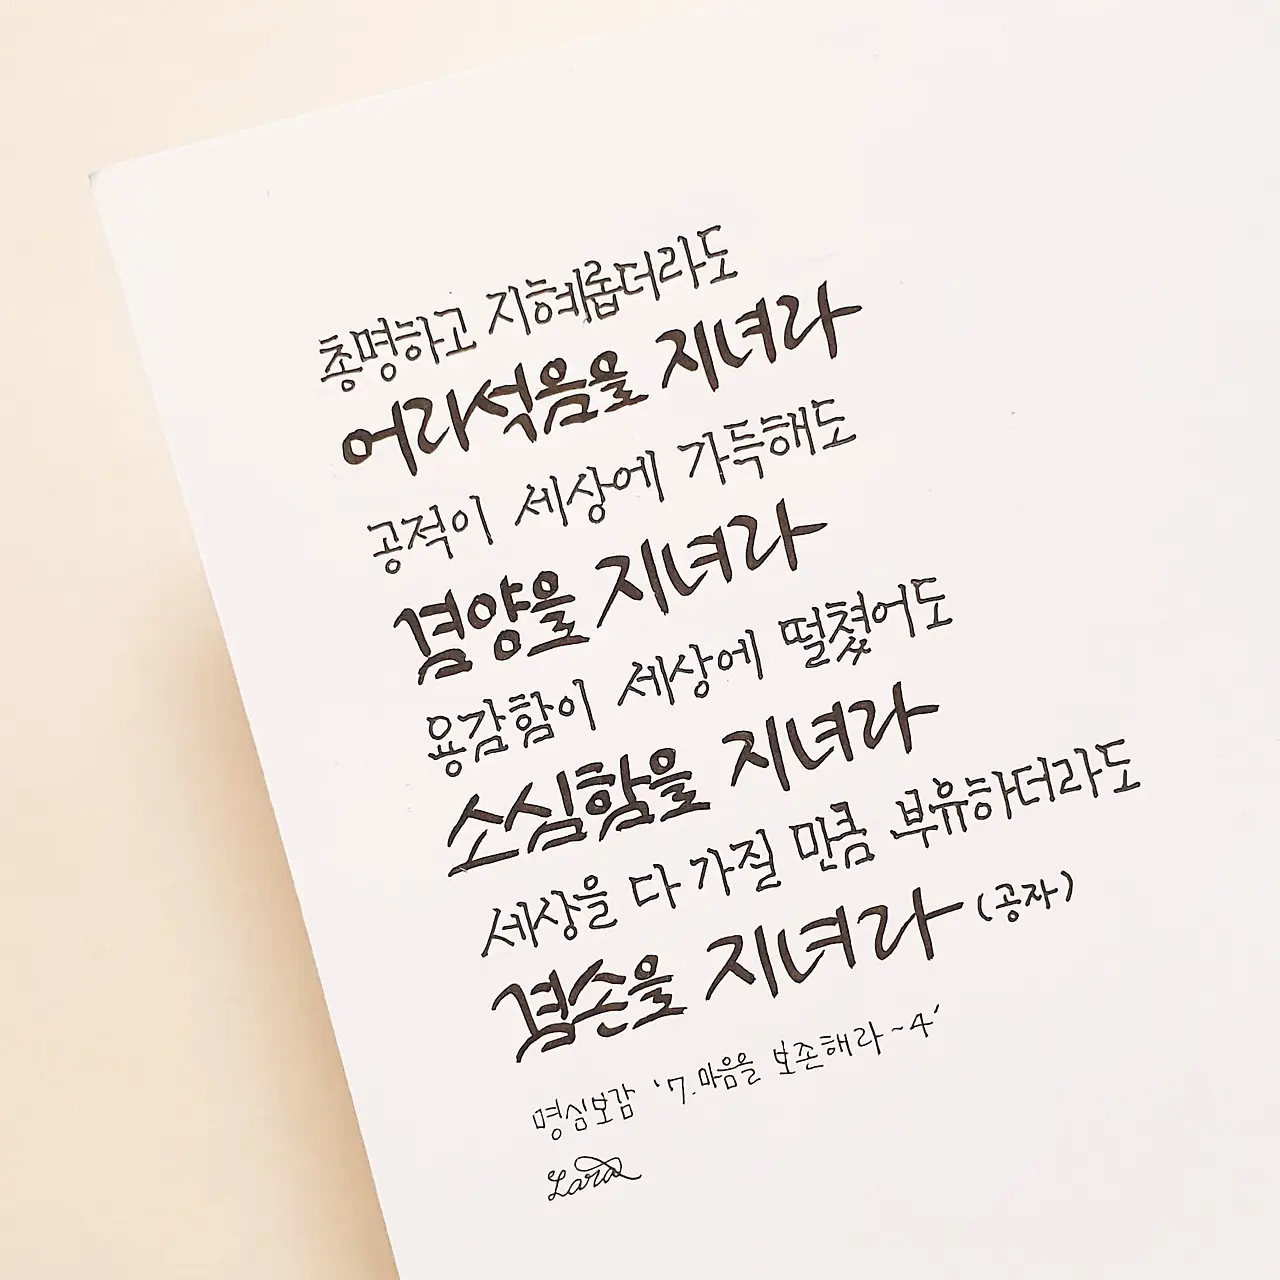 총명하고 지혜롭더라도
어리석음을 지녀라
공적이 세상에 가득해도
겸양을 지녀라
용감함이 세상에 떨쳤어도
소심함을 지녀라
세상을 다 가질 만큼 부유하더라도
겸손을 지녀라 (공자)
명심보감 '7. 마음을 보존해라 ~ 4'
Lara